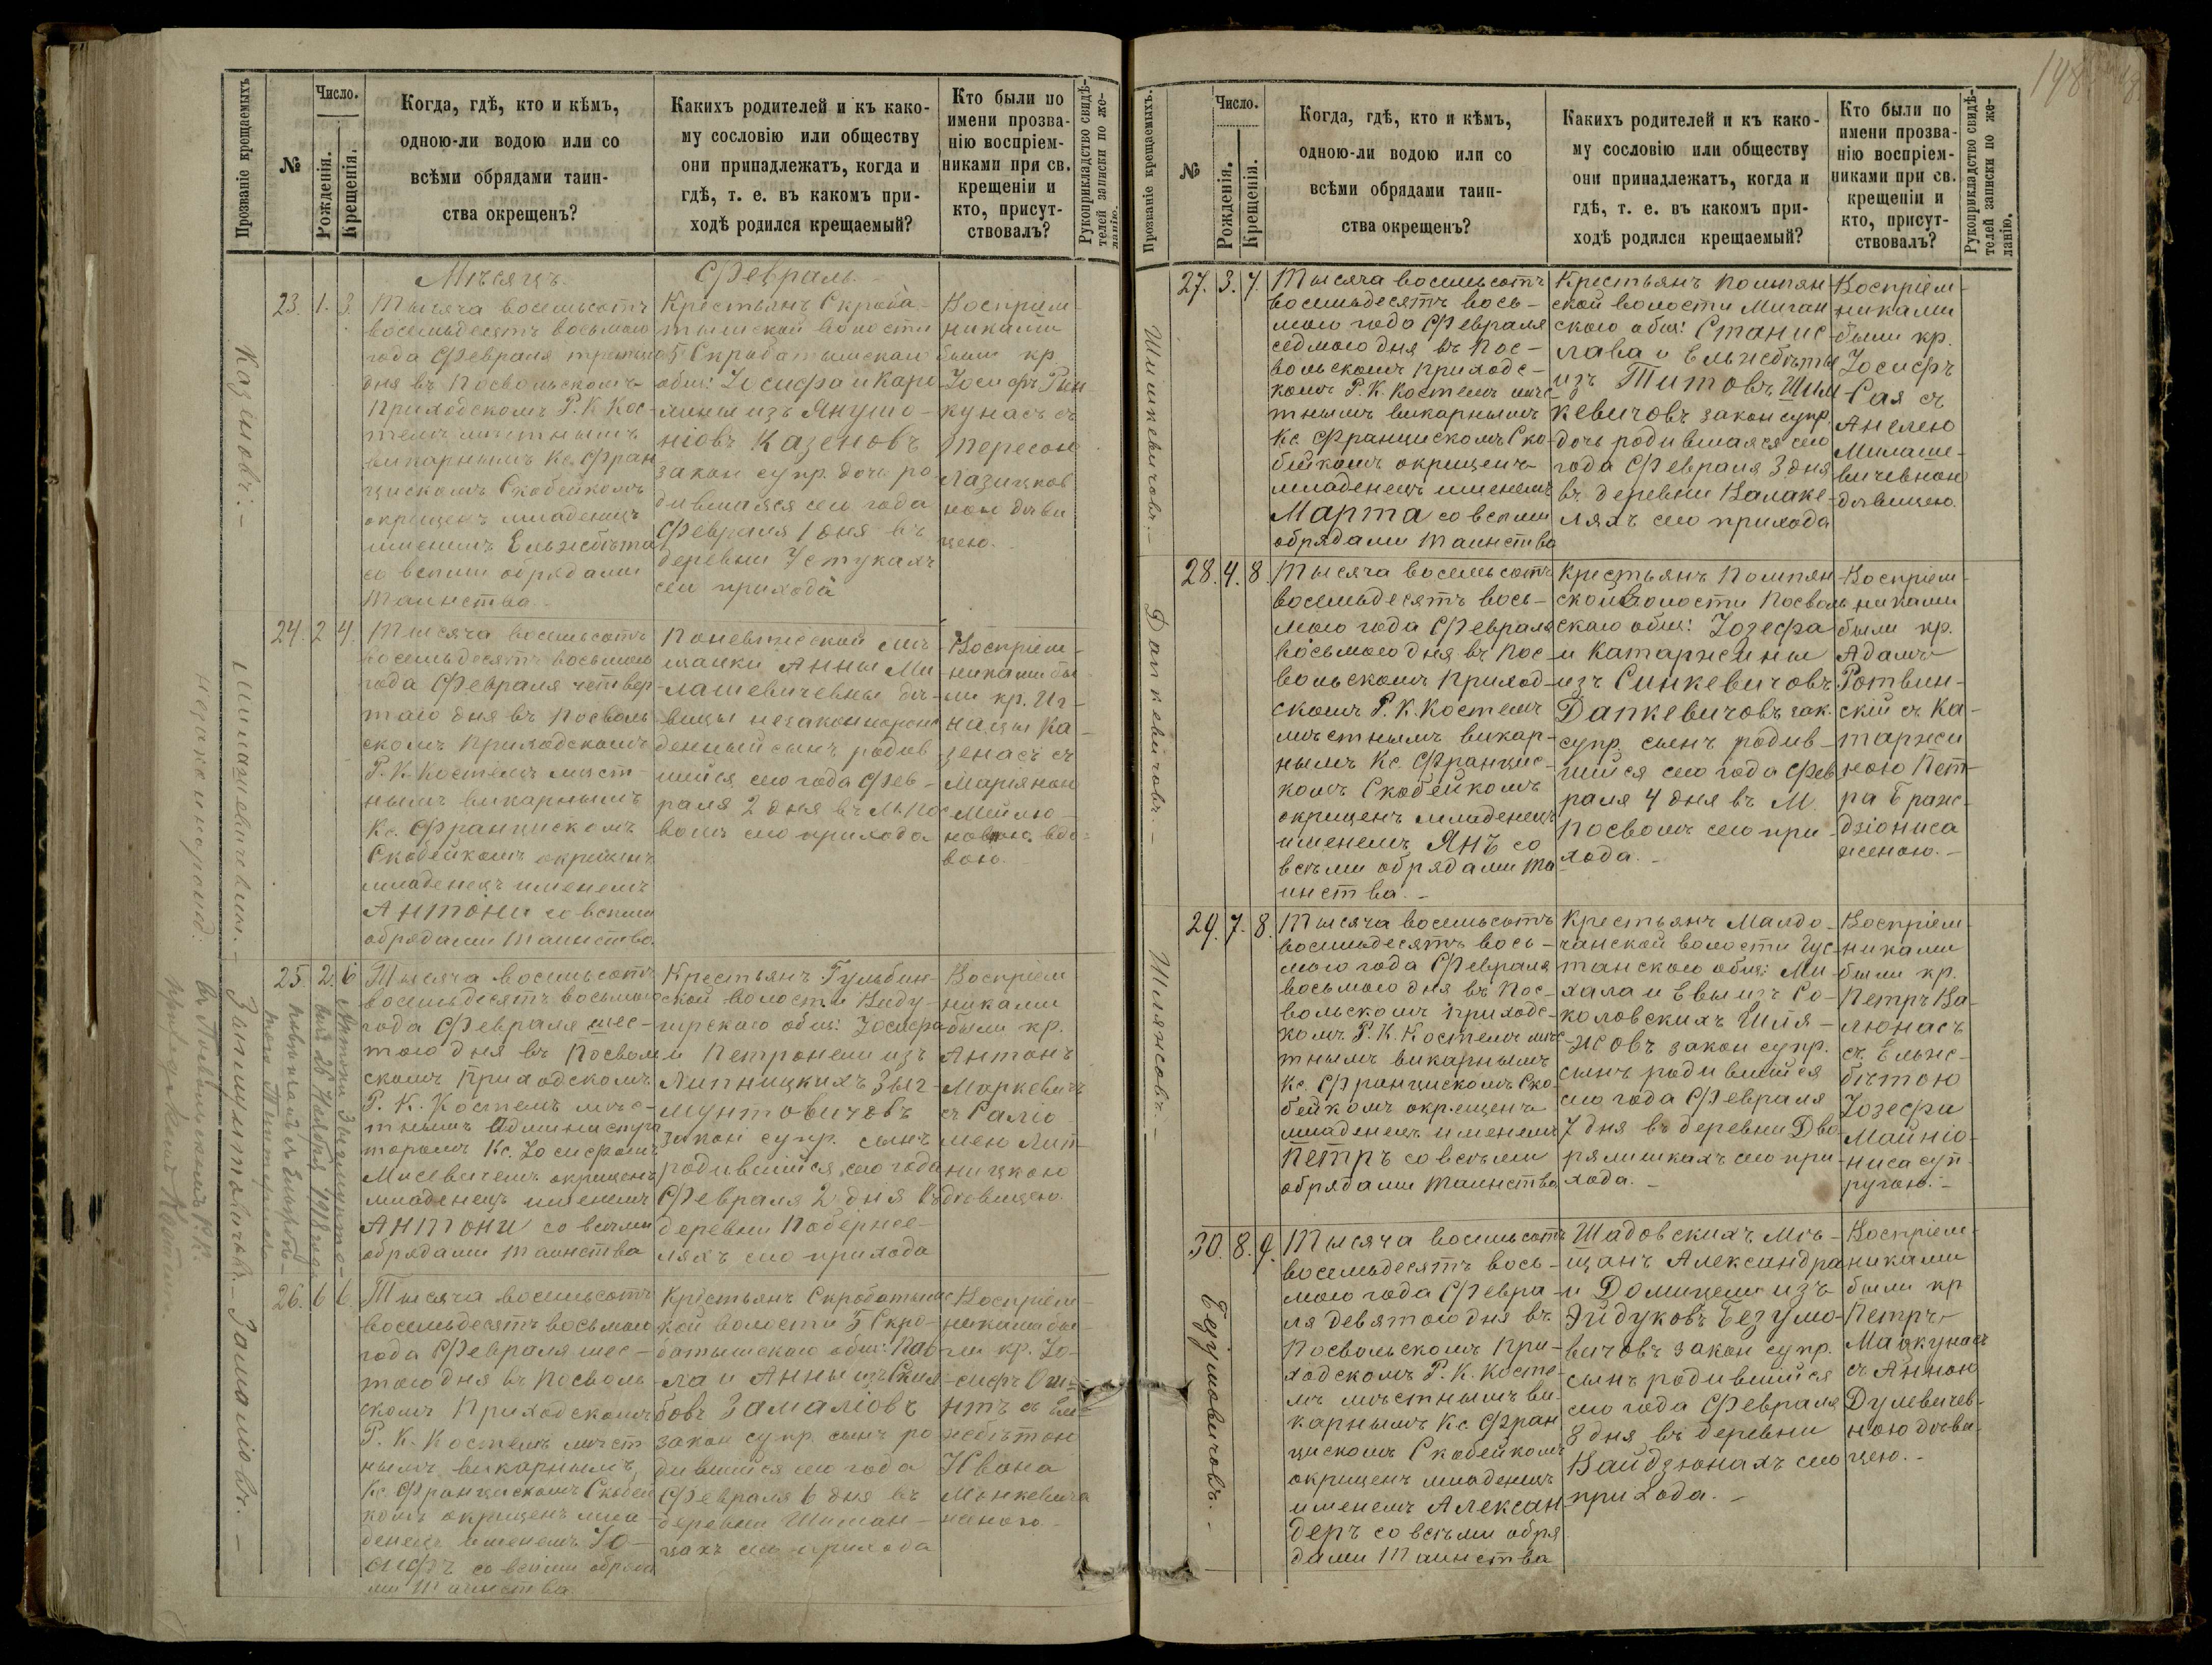 Прозваніе крещаемыхъ
№
Число.
Рожденія.
Крещенія.
Когда, гдѣ, кто и кѣмъ,
одною-ли водою или со
всѣми обрядами таин-
ства окрещенъ?
Какихъ родителей и къ како-
му сословію или обществу
они принадлежатъ, когда и
гдѣ, т. е. въ какомъ при-
ходѣ родился крещаемый?
Кто были по
имени прозва-
нію воспріем-
никами при св.
крещеніи и
кто, присут-
ствовалъ?
Рукоприкладство свидѣ-
телей записки по же-
ланію.
Мѣсяцъ.
Февраль.
Казеновъ. -
23. 1. 3.
Тысяча восемьсотъ
восемьдесятъ восьмого
года Февраля третьяго
дня въ Посвольскомъ
Приходскомъ Р. К. Кос-
телѣ мѣстнымъ
викарнымъ Кс. Фран
цискомъ Скобейкомъ
окрещенъ младенецъ
именемъ Ельжбѣта
со всѣми обрядами
Таинства.
Крестьянъ Скроба-
тышской волости
Скробатышскаго
общ: Іосифа и Каро
лины изъ Янушо-
ніовъ Казеновъ
закон супр. дочь ро
дившаяся сего года
Февраля 1 дня въ
деревни Устукахъ
сего прихода
Воспріем-
никами
были кр.
Іосифъ Рин
кунасъ съ
Тересою
Лазицков
ною дѣви
цею.
Шимашевичевна. -
незаконнорожд.
24. 2 4.
Тысяча восемьсотъ
восемьдесятъ восьмого
года Февраля четвер
таго дня въ Посволь
скомъ Приходскомъ
Р. К. Костелѣ мѣст-
нымъ викарнымъ
Кс. Францискомъ
Скобейкомъ окрещенъ
младенецъ именемъ
Антони со всѣми
обрядами Таинства.
Поневѣжской мѣ
щанки Анны Ми
лашевичевны дѣ-
вицы незаконнорож
денный сынъ родив
шійся сего года Фев-
раля 2 дня въ М. По
волѣ сего прихода
Воспріем-
никами бы
ли кр. Иг-
нацы Ка-
зенасъ съ
Маріяною
Мейлю-
новною вдо-
вою.
Зыгмунтовичъ. -
25. 2. 6
Тысяча восемьсотъ
восемьдесятъ восьмого
года Февраля шес-
того дня въ Посволь
скомъ Приходскомъ
Р. К. Костелѣ мѣс-
тнымъ Администра
торомъ Кс. Іосифомъ
Мисевичемъ окрещенъ
младенецъ именемъ
Антони со всѣми
обрядами Таинства
Крестьянъ Гульбин-
ской волости Виду-
гирскаго общ: Іосифа
и Петронели изъ
Липницкихъ Зыг-
мунтовичовъ
закон супр. сынъ
родившійся сего года
Февраля 2 дня въ
деревни Побернее-
ляхъ сего прихода
Воспріем
никами
были кр.
Антонъ
Маркевичъ
съ Саліо
меею Лип-
ницкою
дѣвицею.
Замаліовъ. -
26. 6 6.
Тысяча восемьсотъ
восемьдесятъ восьмого
года Февраля шес-
того дня въ Посволь
скомъ Приходскомъ
Р. К. Костелѣ мѣст
нымъ викарнымъ
Кс. Францискомъ Скобей
комъ окрещенъ мла-
денецъ именемъ Іо-
сифъ со всѣми обряда
ми Таинства
Крестьянъ Скробатышс
кой волости Скро-
батышскаго общ: Пав
ла и Анны изъ
Замаліовъ
закон супр. сынъ ро
дившійся сего года
Февраля 6 дня въ
деревни Шиман-
цахъ сего прихода
Воспріем-
никами бы-
ли кр. Іо-
сифъ
съ Ель-
жбѣтою
Ивана
Минкевича
женою.
148
Прозваніе крещаемыхъ.
№
Число.
Рожденія.
Крещенія.
Когда, гдѣ, кто и кѣмъ,
одною-ли водою или со
всѣми обрядами таин-
ства окрещенъ?
Какихъ родителей и къ како-
му сословію или обществу
они принадлежатъ, когда и
гдѣ, т. е. въ какомъ при-
ходѣ родился крещаемый?
Кто были по
имени прозва-
нію воспріем-
никами при св.
крещеніи и
кто, присут-
ствовалъ?
Рукоприкладство свидѣ-
телей записки по же-
ланію.
Шимкевичовъ. -
27. 3. 7.
Тысяча восемьсотъ
восемьдесятъ вось-
мого года Февраля
седмого дня въ Пос-
вольскомъ Приходс-
комъ Р. К. Костелѣ мѣс-
тнымъ викарнымъ
Кс. Францискомъ Ско-
бейкомъ окрещенъ
младенецъ именемъ
Марта со всѣми
обрядами Таинства
Крестьянъ Помпян
ской волости Миган
скаго общ: Станис
лава и Ельжбѣты
изъ Титовъ Шим
кевичовъ закон супр.
дочь родившаяся сего
года Февраля 3 дня
въ деревни Валаке-
ляхъ сего прихода
Воспріем-
никами
были кр.
Іосифъ
Сая съ
Анелею
Милаше-
вичевною
дѣвицею.
Дапкевичовъ. -
28. 4. 8.
Тысяча восемьсотъ
восемьдесятъ вось-
мого года Февраля
восьмого дня въ Пос-
вольскомъ Приход-
скомъ Р. К. Костелѣ
мѣстнымъ викар-
нымъ Кс. Францис-
комъ Скобейкомъ
окрещенъ младенецъ
именемъ Янъ со
всѣми обрядами Та
инства. -
Крестьянъ Помпян
ской волости Посволь
скаго общ: Іозефа
и Катаржины
изъ Синкевичовъ
Дапкевичовъ зак.
супр. сынъ родив-
шійся сего года Фев
раля 4 дня въ М.
Посволѣ сего при
хода. -
Воспріем-
никами
были кр.
Адамъ
Ротвин-
скій съ Ка-
таржи
ною Пет-
ра Бражс-
дзіониса
женою. -
Шляжовъ. -
29. 7. 8.
Тысяча восемьсотъ
восемьдесятъ вось-
мого года Февраля
восьмого дня въ Пос-
вольскомъ Приходс-
комъ Р. К. Костелѣ мѣс
тнымъ викарнымъ
Кс. Францискомъ Ско-
бейкомъ окрещенъ
младенецъ именемъ
Петръ со всѣми
обрядами Таинства
Крестьянъ Малдо-
чанской волости Гус-
танского общ: Ми-
хала и Евы изъ Со-
коловскихъ Шля-
жовъ закон супр.
сынъ родившійся
сего года Февраля
7 дня въ деревни Дво
рялишкахъ сего при-
хода. -
Воспріем-
никами
были кр.
Петръ Ва-
люнасъ
съ Ельжс-
бѣтою
Іозефа
Майніо-
ниса суп-
ругою. -
Безумовичовъ. -
30. 8. 9.
Тысяча восемьсотъ
восемьдесятъ вось-
мого года Февра-
ля девятого дня въ
Посвольскомъ При-
ходскомъ Р. К. Косте-
лѣ мѣстнымъ ви-
карнымъ Кс. Фран
цискомъ Скобейкомъ
окрещенъ младенецъ
именемъ Алексан
деръ со всѣми обря
дами Таинства
Шадовскихъ мѣ-
щанъ Александра
и Домицели изъ
Эйдуковъ Безумо-
вичовъ закон супр.
сынъ родившійся
сего года Февраля
8 дня въ деревни
Вайдзюнахъ сего
прихода. -
Воспріем-
никами
были кр
Петръ
Мацкунасъ
съ Анною
Дулевичев-
ною дѣви-
цею. -